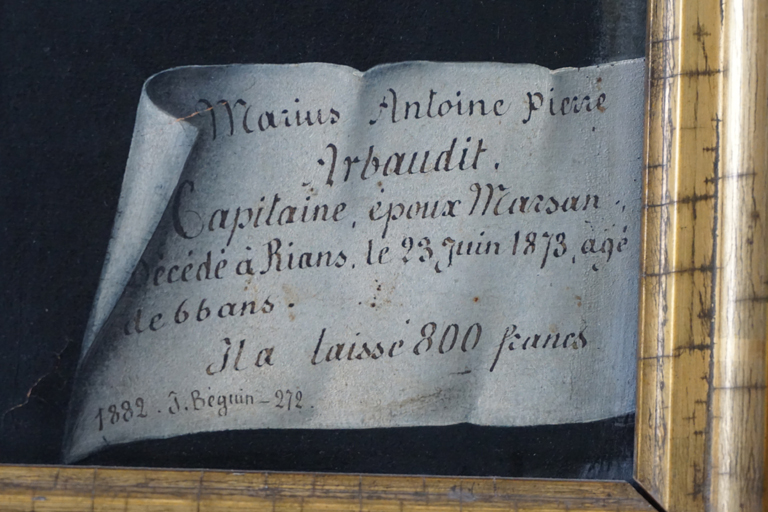 Marius Antoine Pierre
Arbaudit.
Capitaine, époux Marsan.
Décédé à Rians, le 23 Juin 1873, agé
de 66 ans.
Il a laissé 800 francs
1882. J. Béguin - 272.